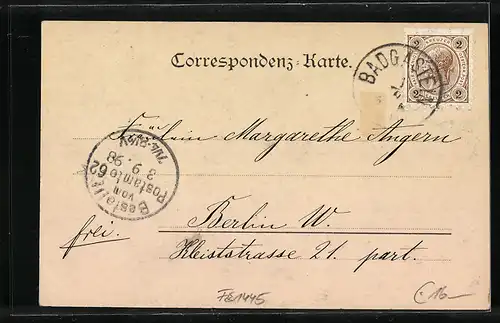 Correspondenz-Karte.
BADGASTEIN
2 2
Fräulein Margarethe Angern
Bestellt
vom
Postamte 62
3 . 9 . 98
7¼-8¼V
Berlin W.
frei.
Kleiststrasse 21. part.
FE1445
€ 16-